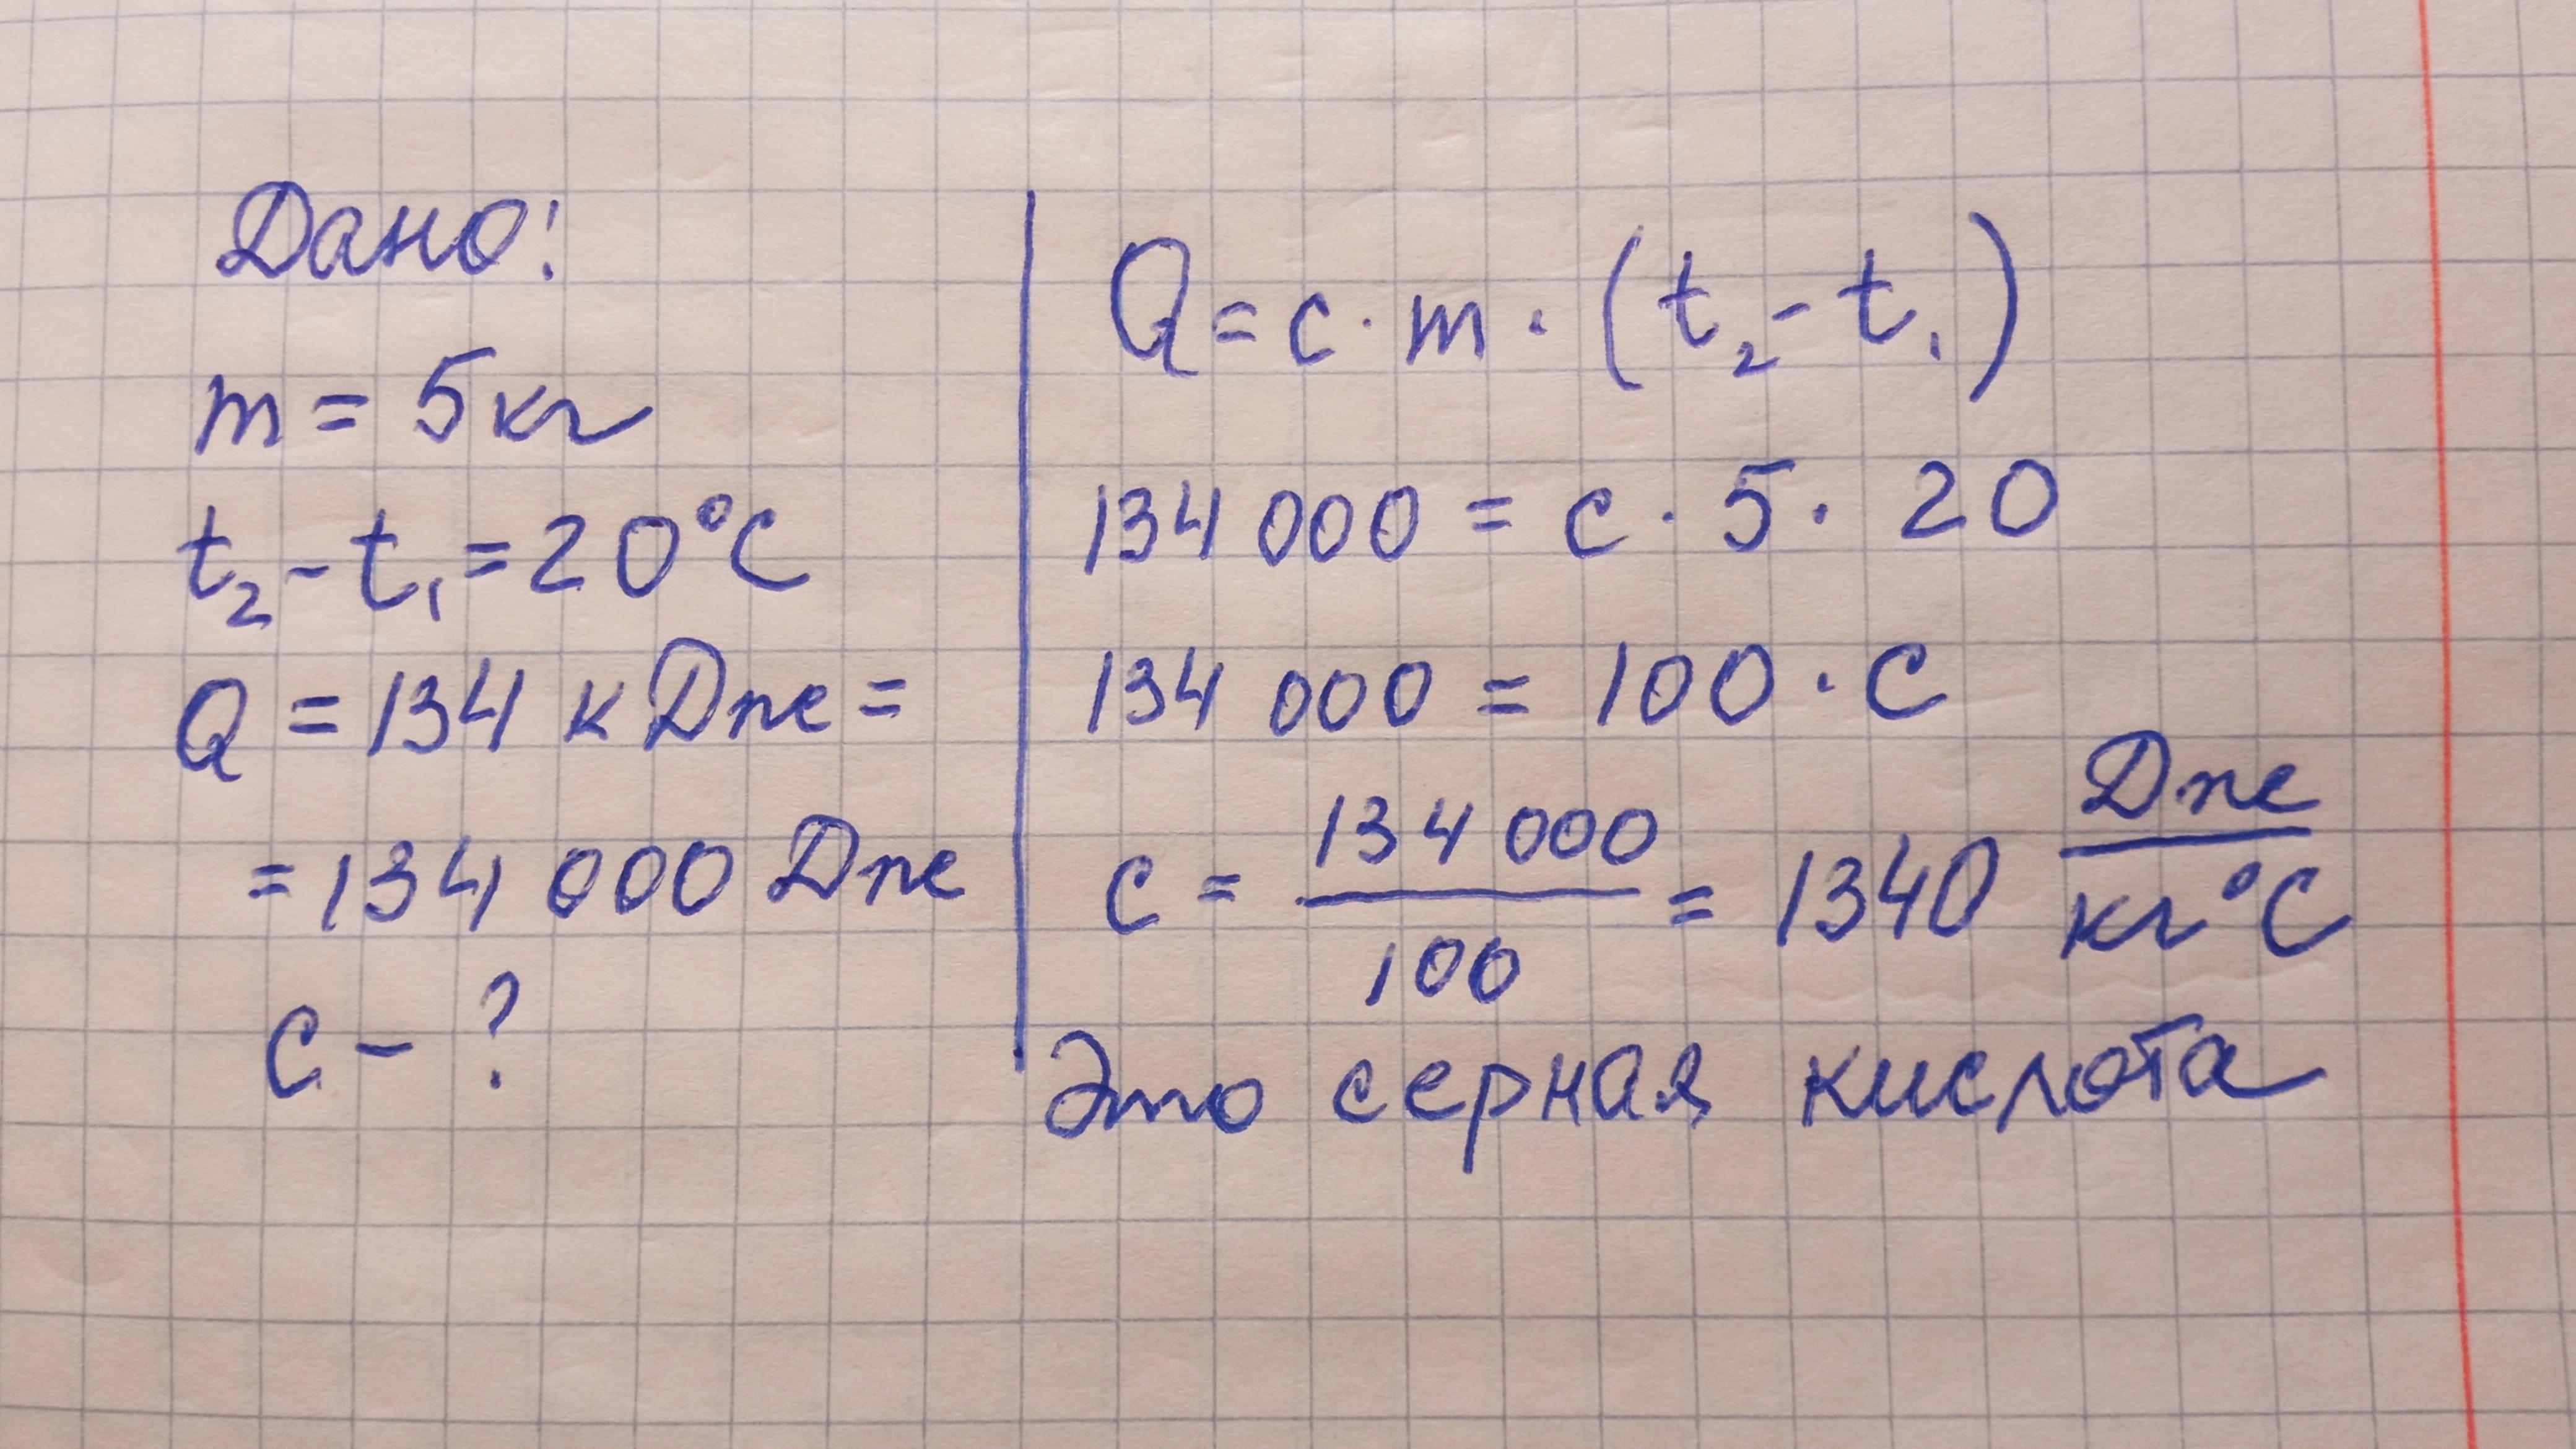 Дано:
m = 5 кг
t₂ - t₁ = 20°C
Q = 134 кДж =
= 134 000 Дж
c - ?
Q = c · m · (t₂ - t₁)
134 000 = c · 5 · 20
134 000 = 100 · c
c = 134 000 / 100 = 1340 Дж / кг°C
Это серная кислота